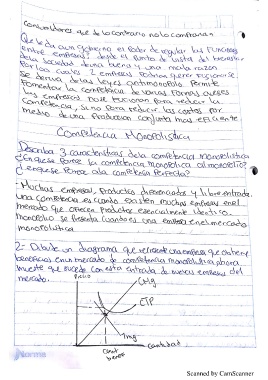 consumidores que de lo contrario no lo compraran
Que le da a un gobierno el Poder de regular las Funciones
entre empresas, desde el Punto de vista del bienestar
de la sociedad de una buena y una mala razón
Por las cuales 2 empresas Podrian querer Fusionarse.
Se deriva de las leyes antimonopolio Permite
Fomentar la competencia de varias Formas aveces
las empresas se fusionan para reducir la
Competencia, sino Para reducir los costos Por
medio de una Produccion conjunta mas eficiente
Competencia Monopolistica
Describa 3 características de la competencia monopolistica
¿En que se Parece la competencia monopolica al monopolio?
¿En que se Parece a la competencia Perfecta?
- Muchas empresas, Productos diferenciados y libre entrada
una competencia es cuando existen muchas empresas en el
mercado que ofrecen Productos esencialmente identico.
monopolio se Presenta cuando es una empresa en el mercado
monopolistica
2- Dibuje un diagrama que represente una empresa que obtiene
beneficios en un mercado de competencia monopolistica ahora
muestre que sucede con esta entrada de nuevas empresas del
mercado.
Precio
CMg
CTP
Img
Cantidad
Cant
Norma
Scanned by CamScanner